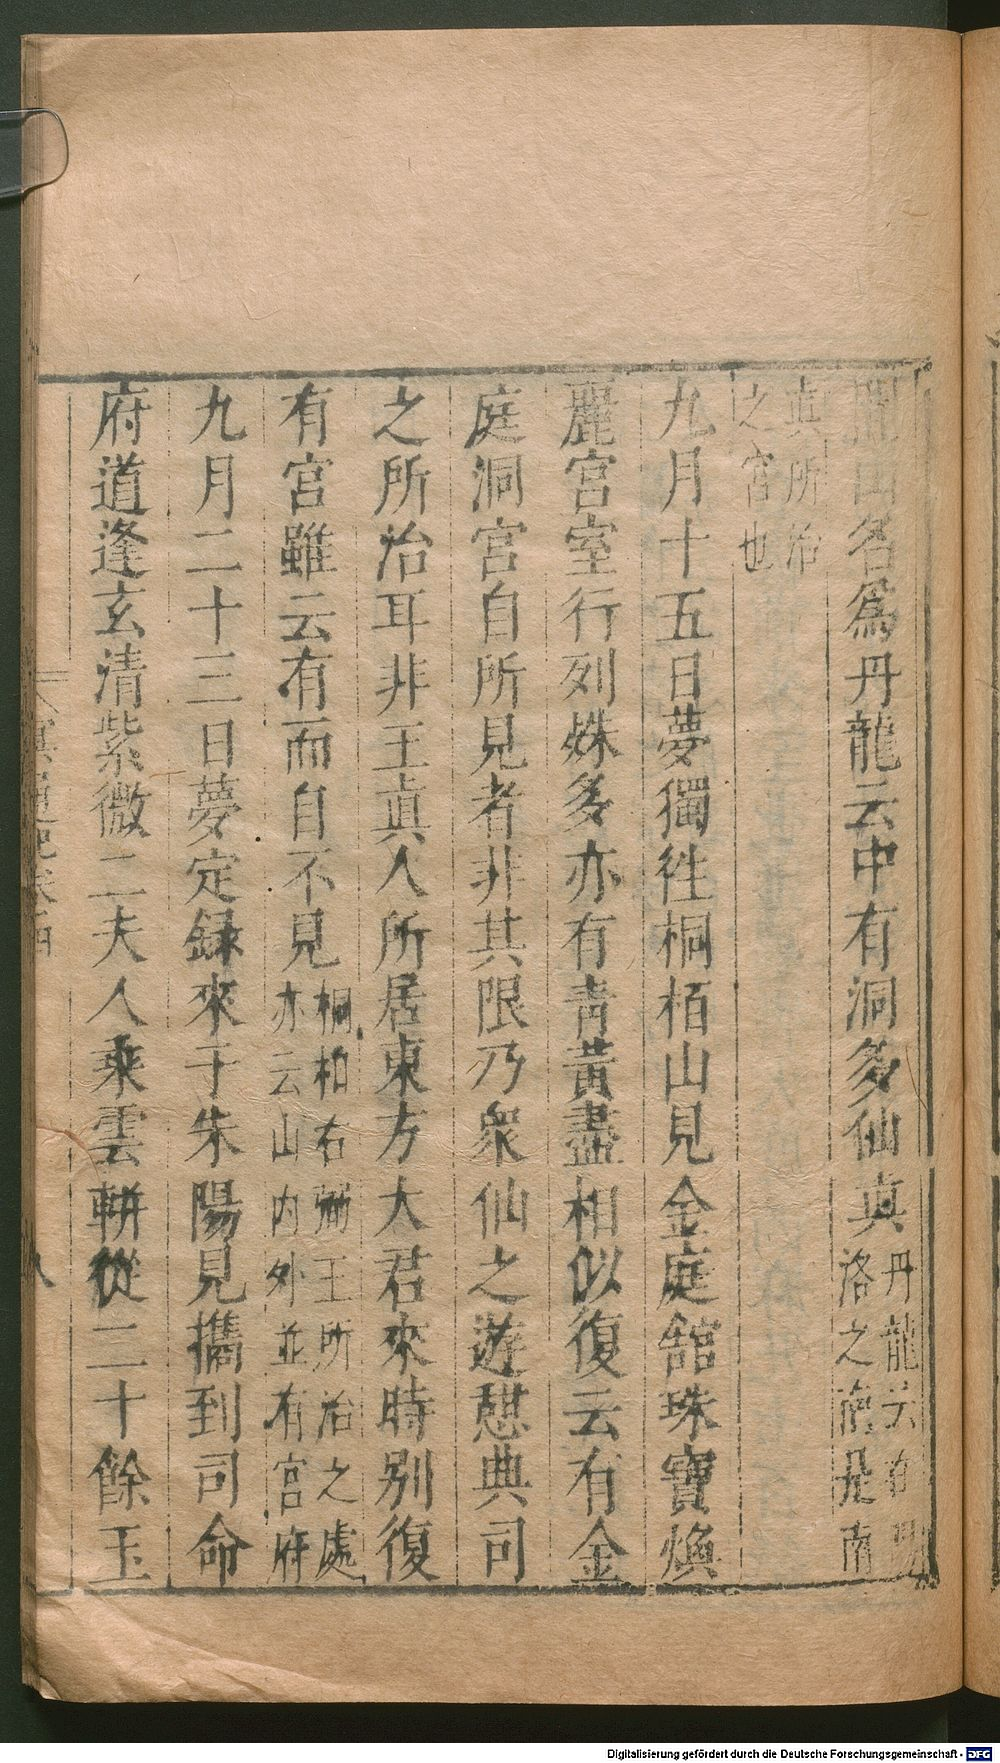 山名爲丹龍云中有洞多仙真丹龍云在
洛之南是南
真所治
之宫也
九月十五日夢獨徃桐栢山見金庭舘珠寶煥
麗宫室行列姝多亦有青黄盡相似復云有金
庭洞宫自所見者非其限乃衆仙之遊憇典司
之所治耳非王眞人所居東方大君來時别復
有宫雖云有而自不見桐柏右弼王所治之處
亦云山内外並有宫府
九月二十三日夢定録來于朱陽見攜到司命
府道逢玄清紫微二夫人乘雲軿從二十餘玉
冥通記卷四
八
Digitalisierung gefördert durch die Deutsche Forschungsgemeinschaft - DFG